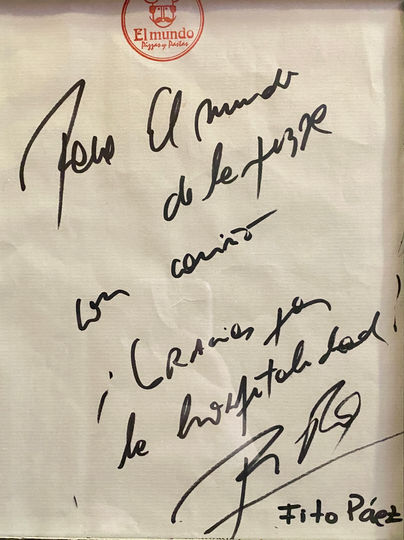 El mundo
Pizzas y Pastas
Para El mundo
de la pizza
con cariño
¡GRACias por
la hospitalidad!
Fito Páez